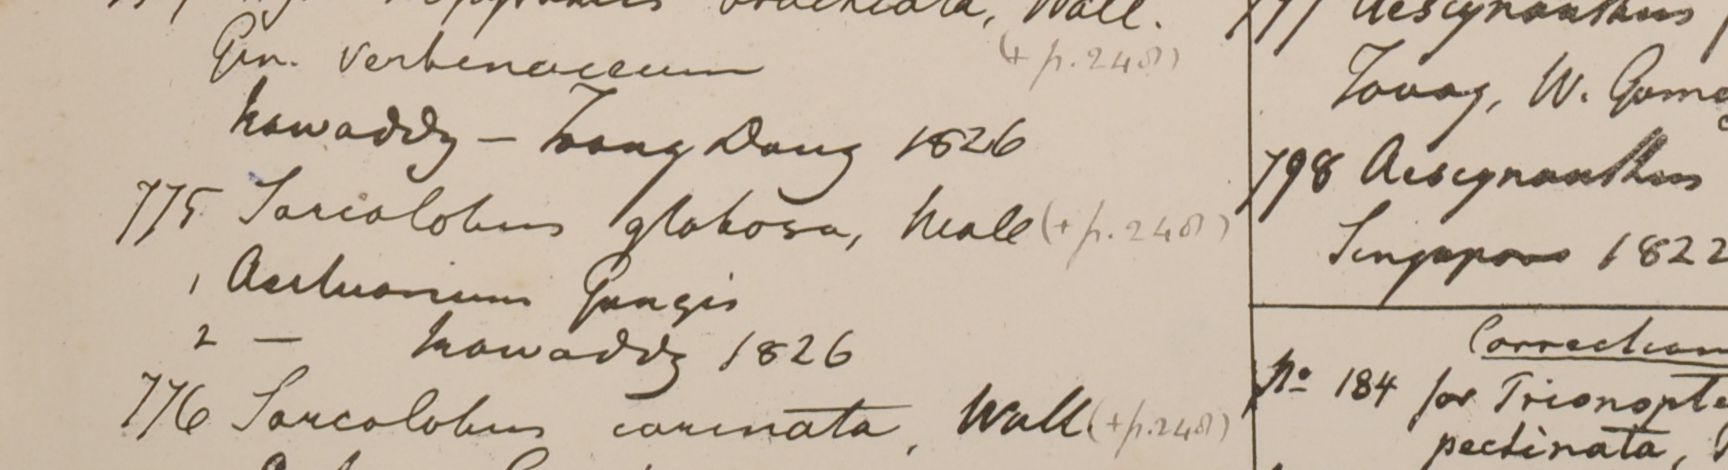 brachiata, Wall.
Gen. Verbenaceum (+ p. 248)
Irawaddy – Dong 1826
775 Sarcolobus globosa, Wall (+ p. 248)
1 Aestuarium Gangis
2 — Irawaddy 1826
776 Sarcolobus carinata, Wall (+ p. 248)
797 Aescynanthus
Tavoy, W. Gome
798 Aescynanthus
Singapore 1822
Correction
No 184 for Trionopte
pectinata,